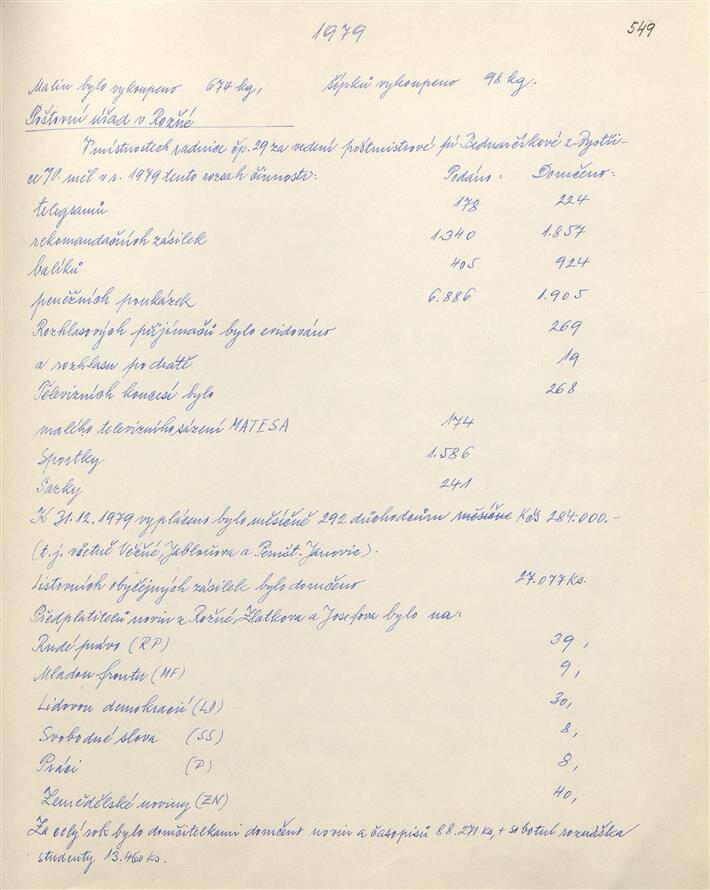 1979
549
Malin bylo vykoupeno 674 kg, šípků vykoupeno 98 kg.
Poštovní úřad v Rožné
V místnostech radnice čp. 29 za vedení poštmistrové pí Bednarčíkové z Bystři-
ce n/P. měl v r. 1979 tento rozsah činnosti: Podáno: Doručeno:
telegramů 178 224
rekomandačních zásilek 1.340 1.857
balíků 405 924
peněžních poukázek 6.886 1.905
Rozhlasových přijímačů bylo evidováno 269
a rozhlasu po drátě 19
Televizních koncesí bylo 268
malého televizního sázení MATESA 174
Sportky 1.586
Sazky 241
K 31.12.1979 vypláceno bylo měsíčně 292 důchodcům měsíčne Kčs 284.000.-
(t.j. včetně Věžné, Jabloňova a Pernšt. Janovic).
Listovních obyčejných zásilek bylo doručeno 27.077 ks.
Předplatitelů novin z Rožné, Zlatkova a Josefova bylo na:
Rudé právo (RP) 39,
Mladou frontu (MF) 9,
Lidovou demokracii (LD) 30,
Svobodné slovo (SS) 8,
Práci (P) 8,
Zemědělské noviny (ZN) 40,
Za celý rok bylo doručitelkami doručeno novin a časopisů 88.271 ks, + sobotní roznáška
studenty 13.460 ks.